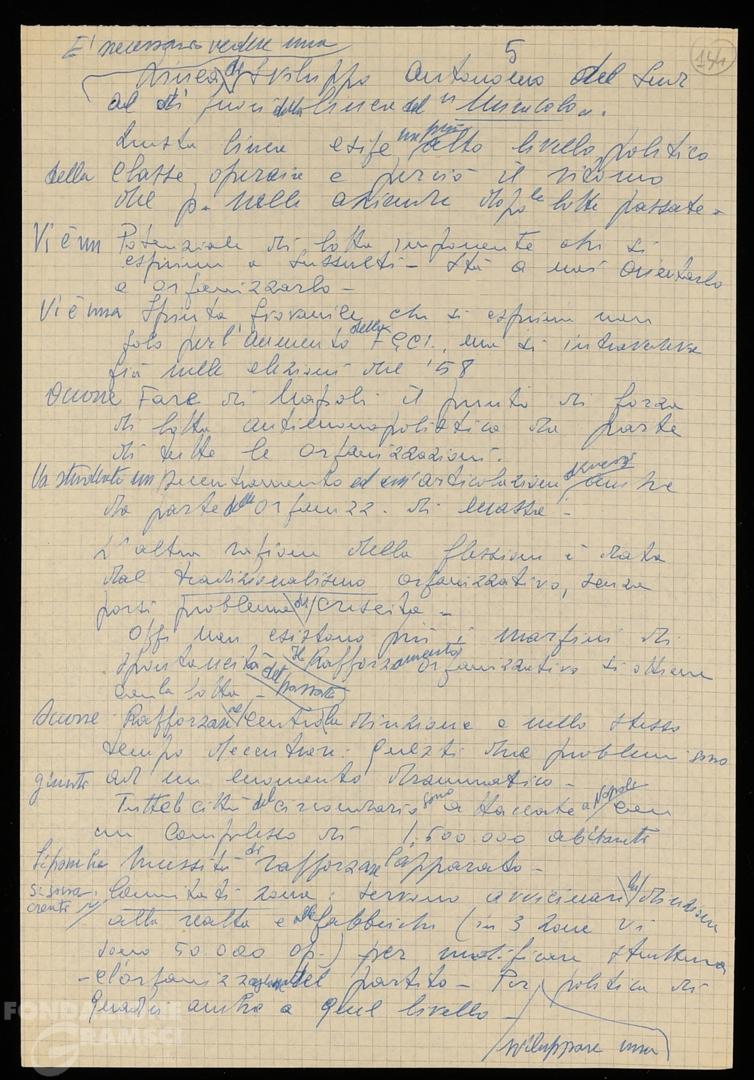 5
141
E' necessario vedere una
linea di sviluppo autonomo del Sud
al di fuori della linea del "Muscolo".
Questa linea esige un più alto livello politico
della classe operaia e perciò il ritorno
del p. nelle aziende dopo le lotte passate -
Vi è un Potenziale di lotta imponente che si
esprime a sussulti - Stà a noi orientarlo
e organizzarlo -
Vi è una Spinta giovanile che si esprime non
solo per l'aumento della FGCI, ma si intravedeva
già nelle elezioni del '58
Occorre Fare di Napoli il punto di forza
di lotta antimonopolistica da parte
di tutte le organizzazioni.
Va studiato un decentramento ed un'articolazione anche
da parte delle organizz. di massa -
L'altra ragione della flessione è data
dal tradizionalismo organizzativo, senza
porsi problema di crescita -
Oggi non esistono più i margini di
spontaneità del passato - Il Rafforzamento organizzativo si ottiene
con la lotta -
Occorre Rafforzare centro la direzione e nello stesso
tempo decentrare. Questi due problemi sono
giunti ad un momento drammatico -
Tutte le città del circondario sono attaccate a Napoli con
un complesso di 1,500.000 abitanti
Si pone la necessità di rafforzare l'apparato -
Comitati zona: servono avvicinare la direzione
alla realtà e alle fabbriche (in 3 zone vi
sono 50.000 op.) per modificare struttura
e l'organizzazione del partito - Per politica di
quadri anche a quel livello -
sviluppare una
FONDAZIONE
GRAMSCI